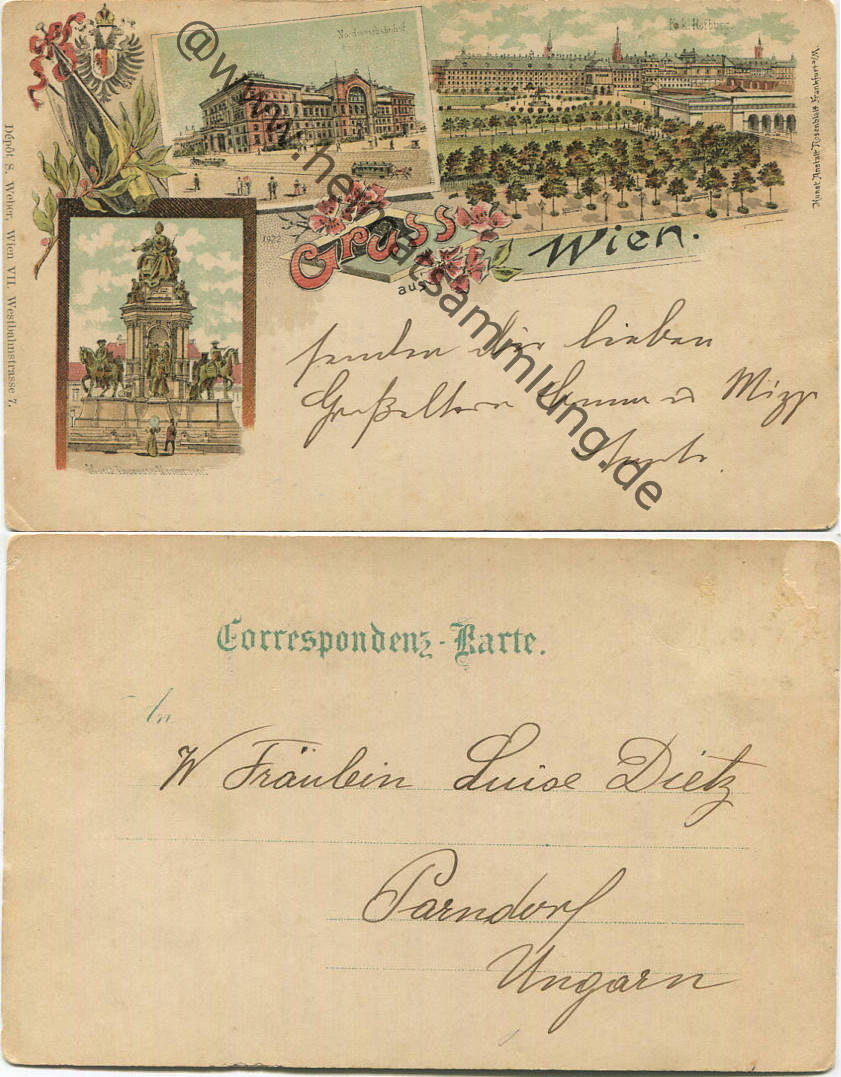 Nordwestbahnhof
K. k. Hofburg.
Kunst Anstalt Rosenblatt Frankfurt a/M.
Dépôt S. Weber. Wien VII. Westbahnstrasse 7.
@www.heimatsammlung.de
1922
Gruss
aus
Wien.
senden die lieben
Großeltern Emma u Mizzi
Maria Theresia-Monument
Correspondenz-Karte.
An
W Fräulein Luise Dietz
Parndorf
Ungarn